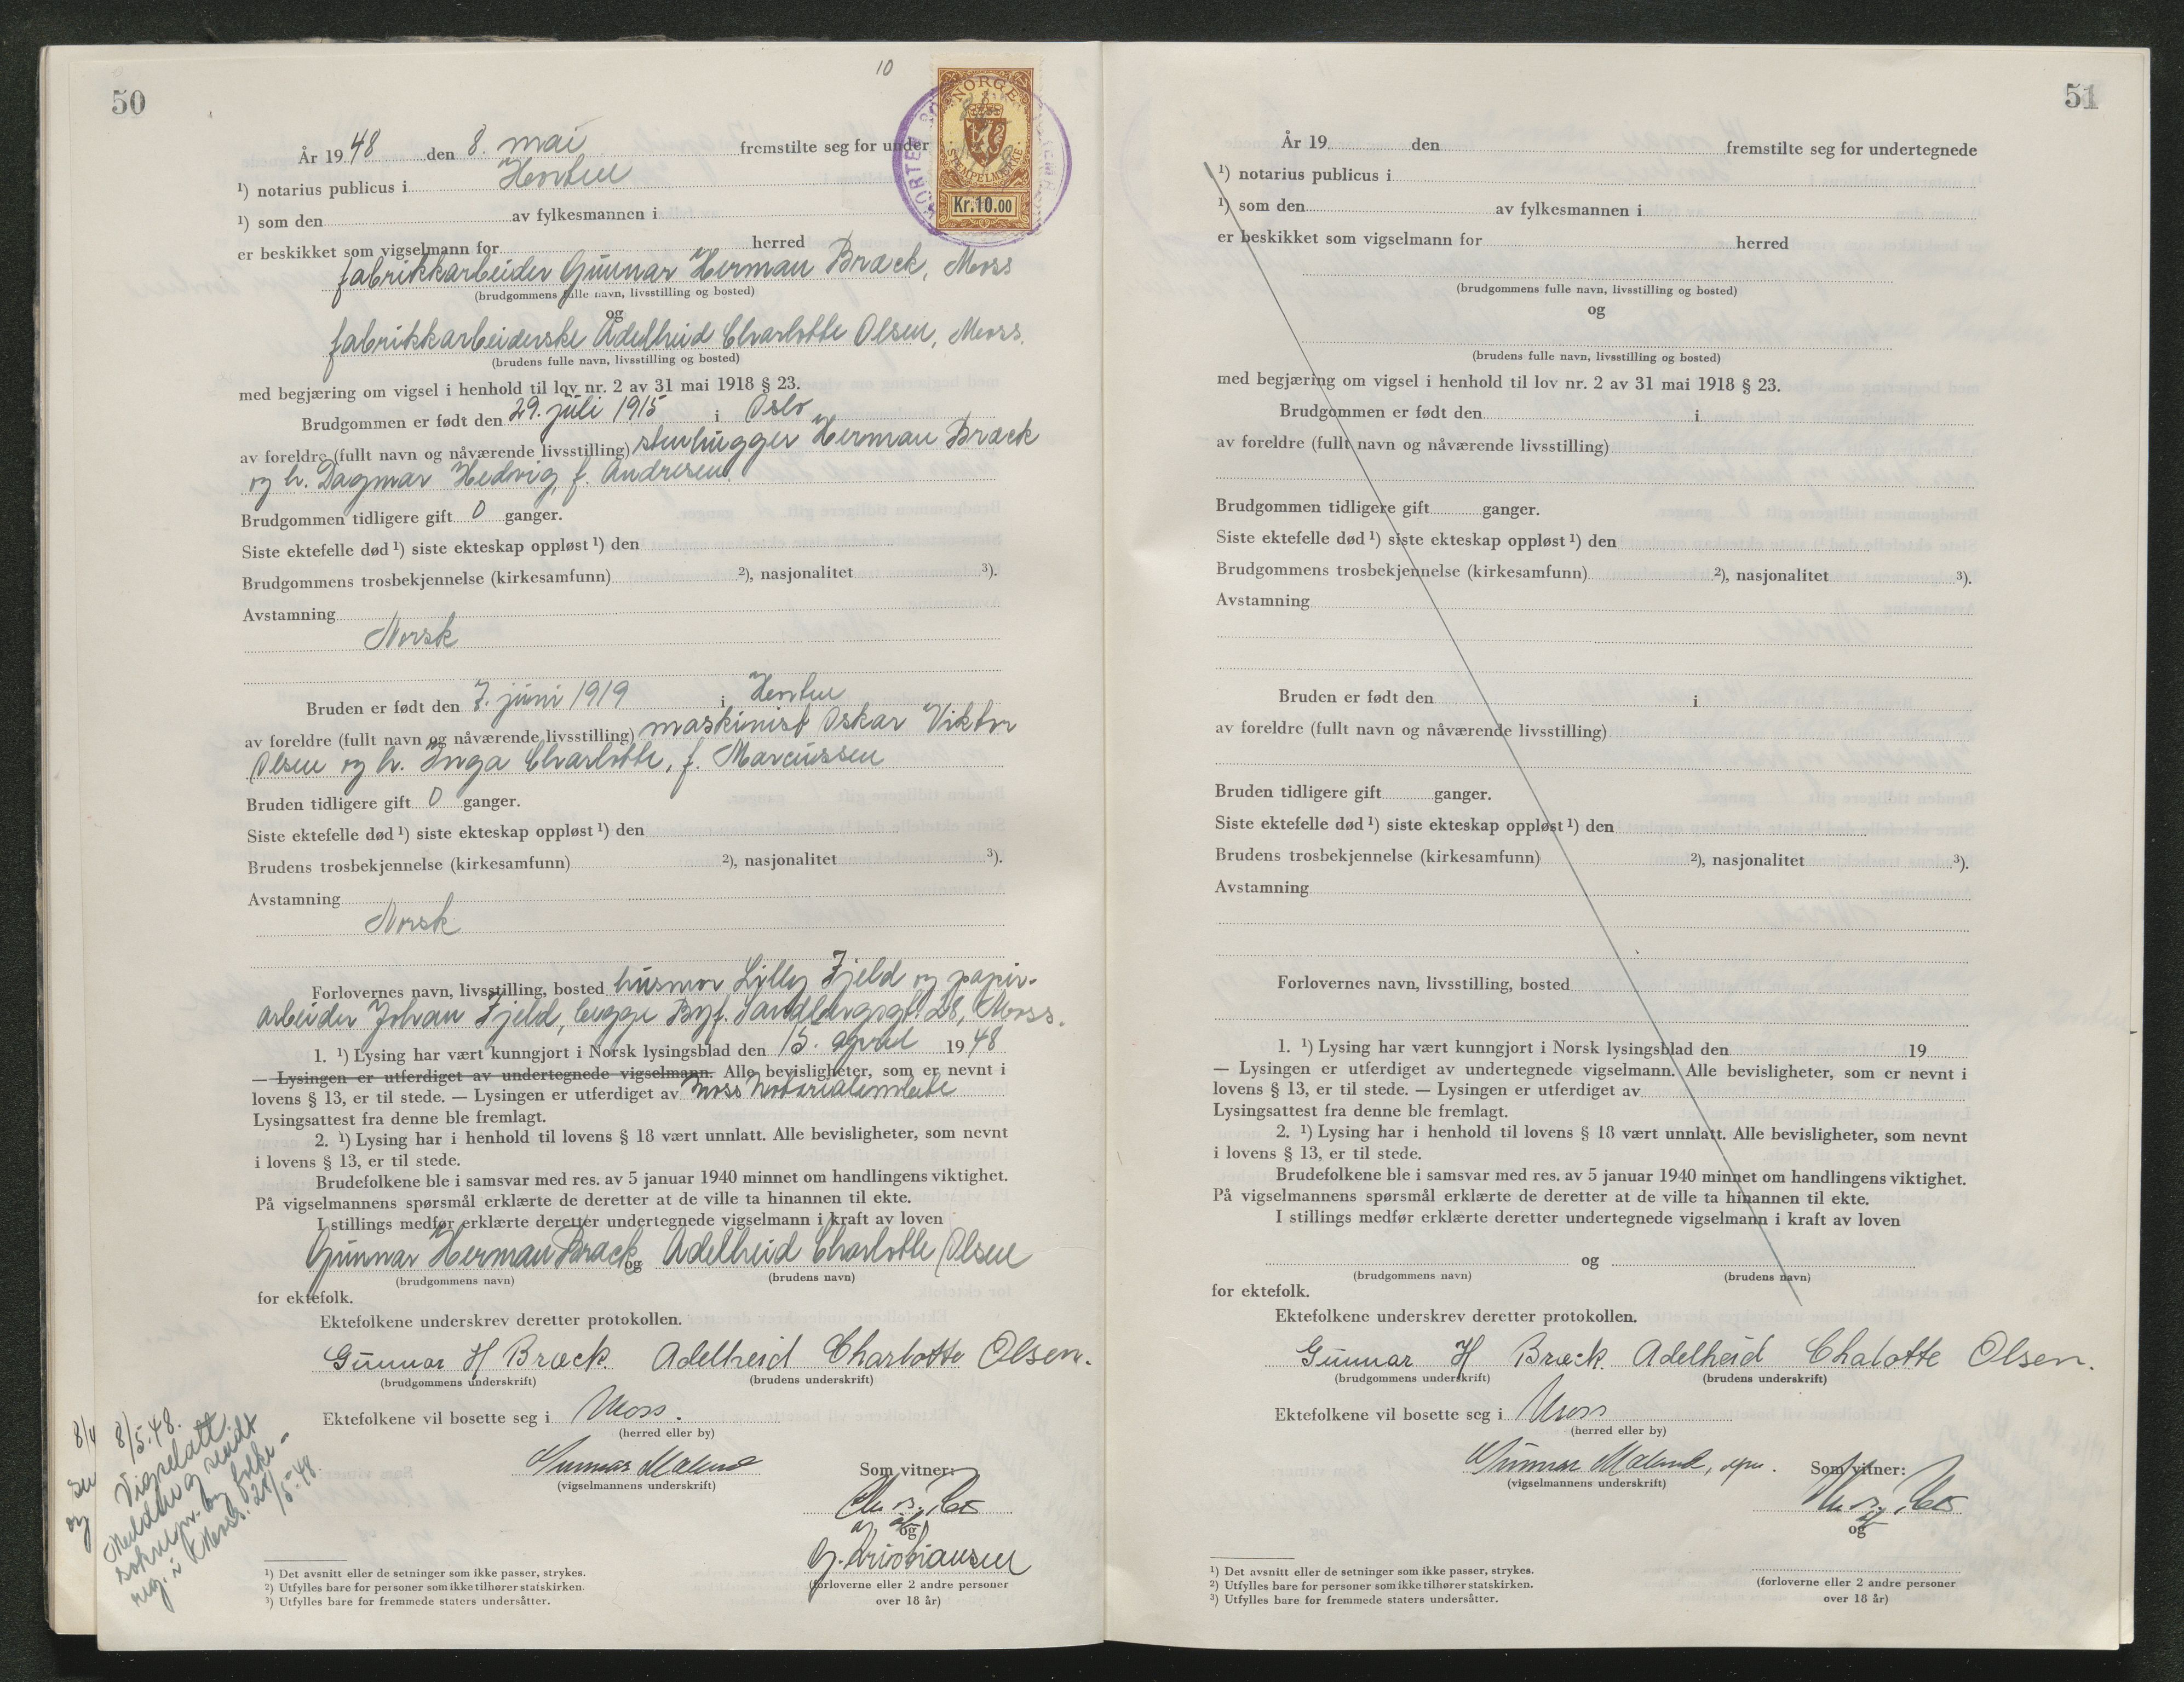 50
10
NORGE
STEMPELMERKE
Kr.10.00
År 1948 den 8. mai fremstilte seg for under
¹) notarius publicus i Horten
¹) som den av fylkesmannen i
er beskikket som vigselmann for herred
fabrikkarbeider Gunnar Herman Bræck, Moss
(brudgommens fulle navn, livsstilling og bosted)
og
fabrikkarbeiderske Adelheid Charlotte Olsen, Moss.
(brudens fulle navn, livsstilling og bosted)
med begjæring om vigsel i henhold til lov nr. 2 av 31 mai 1918 § 23.
Brudgommen er født den 29. juli 1915 i Oslo
av foreldre (fullt navn og nåværende livsstilling) stenhugger Herman Bræck
og h. Dagmar Hedvig, f. Andresen.
Brudgommen tidligere gift 0 ganger.
Siste ektefelle død ¹) siste ekteskap oppløst ¹) den
Brudgommens trosbekjennelse (kirkesamfunn) ²), nasjonalitet ³).
Avstamning
Norsk
Bruden er født den 7. juni 1919 i Horten
av foreldre (fullt navn og nåværende livsstilling) maskinist Oskar Viktor
Olsen og h. Inga Charlotte, f. Marcussen
Bruden tidligere gift 0 ganger.
Siste ektefelle død ¹) siste ekteskap oppløst ¹) den
Brudens trosbekjennelse (kirkesamfunn) ²), nasjonalitet ³).
Avstamning
Norsk
Forlovernes navn, livsstilling, bosted husmor Lilly Fjeld og papir-
arbeider Johan Fjeld, begge Byf. Sandbergsgt. 28, Moss.
1. ¹) Lysing har vært kunngjort i Norsk lysingsblad den 15. april 1948
— Lysingen er utferdiget av undertegnede vigselmann. Alle bevisligheter, som er nevnt i
lovens § 13, er til stede. — Lysingen er utferdiget av Moss Notarialembete
Lysingsattest fra denne ble fremlagt.
2. ¹) Lysing har i henhold til lovens § 18 vært unnlatt. Alle bevisligheter, som nevnt
i lovens § 13, er til stede.
Brudefolkene ble i samsvar med res. av 5 januar 1940 minnet om handlingens viktighet.
På vigselmannens spørsmål erklærte de deretter at de ville ta hinannen til ekte.
I stillings medfør erklærte deretter undertegnede vigselmann i kraft av loven
Gunnar Herman Bræck og Adelheid Charlotte Olsen
(brudgommens navn) (brudens navn)
for ektefolk.
Ektefolkene underskrev deretter protokollen.
Gunnar H Bræck. Adelheid Charlotte Olsen.
(brudgommens underskrift) (brudens underskrift)
Ektefolkene vil bosette seg i Moss.
(herred eller by)
Gunnar Malund
(vigselmannens underskrift)
Som vitner:
og
G. Christiansen
(forloverne eller 2 andre personer
over 18 år)
8/5-48.
Vigselatt.
Meldbr. og sendt
sokнepr. og folke-
reg. i Moss. 28/5-48.
¹) Det avsnitt eller de setninger som ikke passer, strykes.
²) Utfylles bare for personer som ikke tilhører statskirken.
³) Utfylles bare for fremmede staters undersåtter.
51
År 19 den fremstilte seg for undertegnede
¹) notarius publicus i
¹) som den av fylkesmannen i
er beskikket som vigselmann for herred
(brudgommens fulle navn, livsstilling og bosted)
og
(brudens fulle navn, livsstilling og bosted)
med begjæring om vigsel i henhold til lov nr. 2 av 31 mai 1918 § 23.
Brudgommen er født den i
av foreldre (fullt navn og nåværende livsstilling)
Brudgommen tidligere gift ganger.
Siste ektefelle død ¹) siste ekteskap oppløst ¹) den
Brudgommens trosbekjennelse (kirkesamfunn) ²), nasjonalitet ³).
Avstamning
Bruden er født den i
av foreldre (fullt navn og nåværende livsstilling)
Bruden tidligere gift ganger.
Siste ektefelle død ¹) siste ekteskap oppløst ¹) den
Brudens trosbekjennelse (kirkesamfunn) ²), nasjonalitet ³).
Avstamning
Forlovernes navn, livsstilling, bosted
1. ¹) Lysing har vært kunngjort i Norsk lysingsblad den 19
— Lysingen er utferdiget av undertegnede vigselmann. Alle bevisligheter, som er nevnt i
lovens § 13, er til stede. — Lysingen er utferdiget av
Lysingsattest fra denne ble fremlagt.
2. ¹) Lysing har i henhold til lovens § 18 vært unnlatt. Alle bevisligheter, som nevnt
i lovens § 13, er til stede.
Brudefolkene ble i samsvar med res. av 5 januar 1940 minnet om handlingens viktighet.
På vigselmannens spørsmål erklærte de deretter at de ville ta hinannen til ekte.
I stillings medfør erklærte deretter undertegnede vigselmann i kraft av loven
og
(brudgommens navn) (brudens navn)
for ektefolk.
Ektefolkene underskrev deretter protokollen.
Gunnar H Bræck. Adelheid Chalotte Olsen.
(brudgommens underskrift) (brudens underskrift)
Ektefolkene vil bosette seg i Moss
(herred eller by)
Gunnar Malund,
(vigselmannens underskrift)
Som vitner:
og
(forloverne eller 2 andre personer
over 18 år)
¹) Det avsnitt eller de setninger som ikke passer, strykes.
²) Utfylles bare for personer som ikke tilhører statskirken.
³) Utfylles bare for fremmede staters undersåtter.